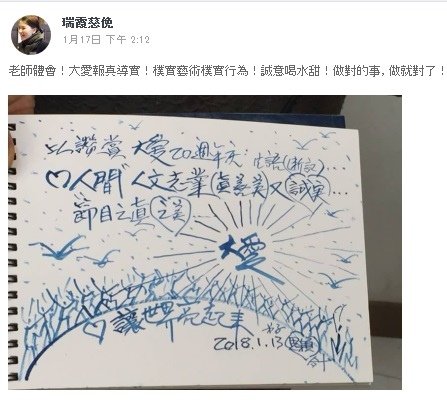 瑞霞慈俛
1月17日 下午 2:12
老師體會！大愛報真導實！樸實藝術樸實行為！誠意喝水甜！做對的事，做就對了！
以讚賞 大愛20週年天
人間 人文志業 真善美又 誠實...
節目之真 之美
大愛
讓世界亮起來
2018.1.13